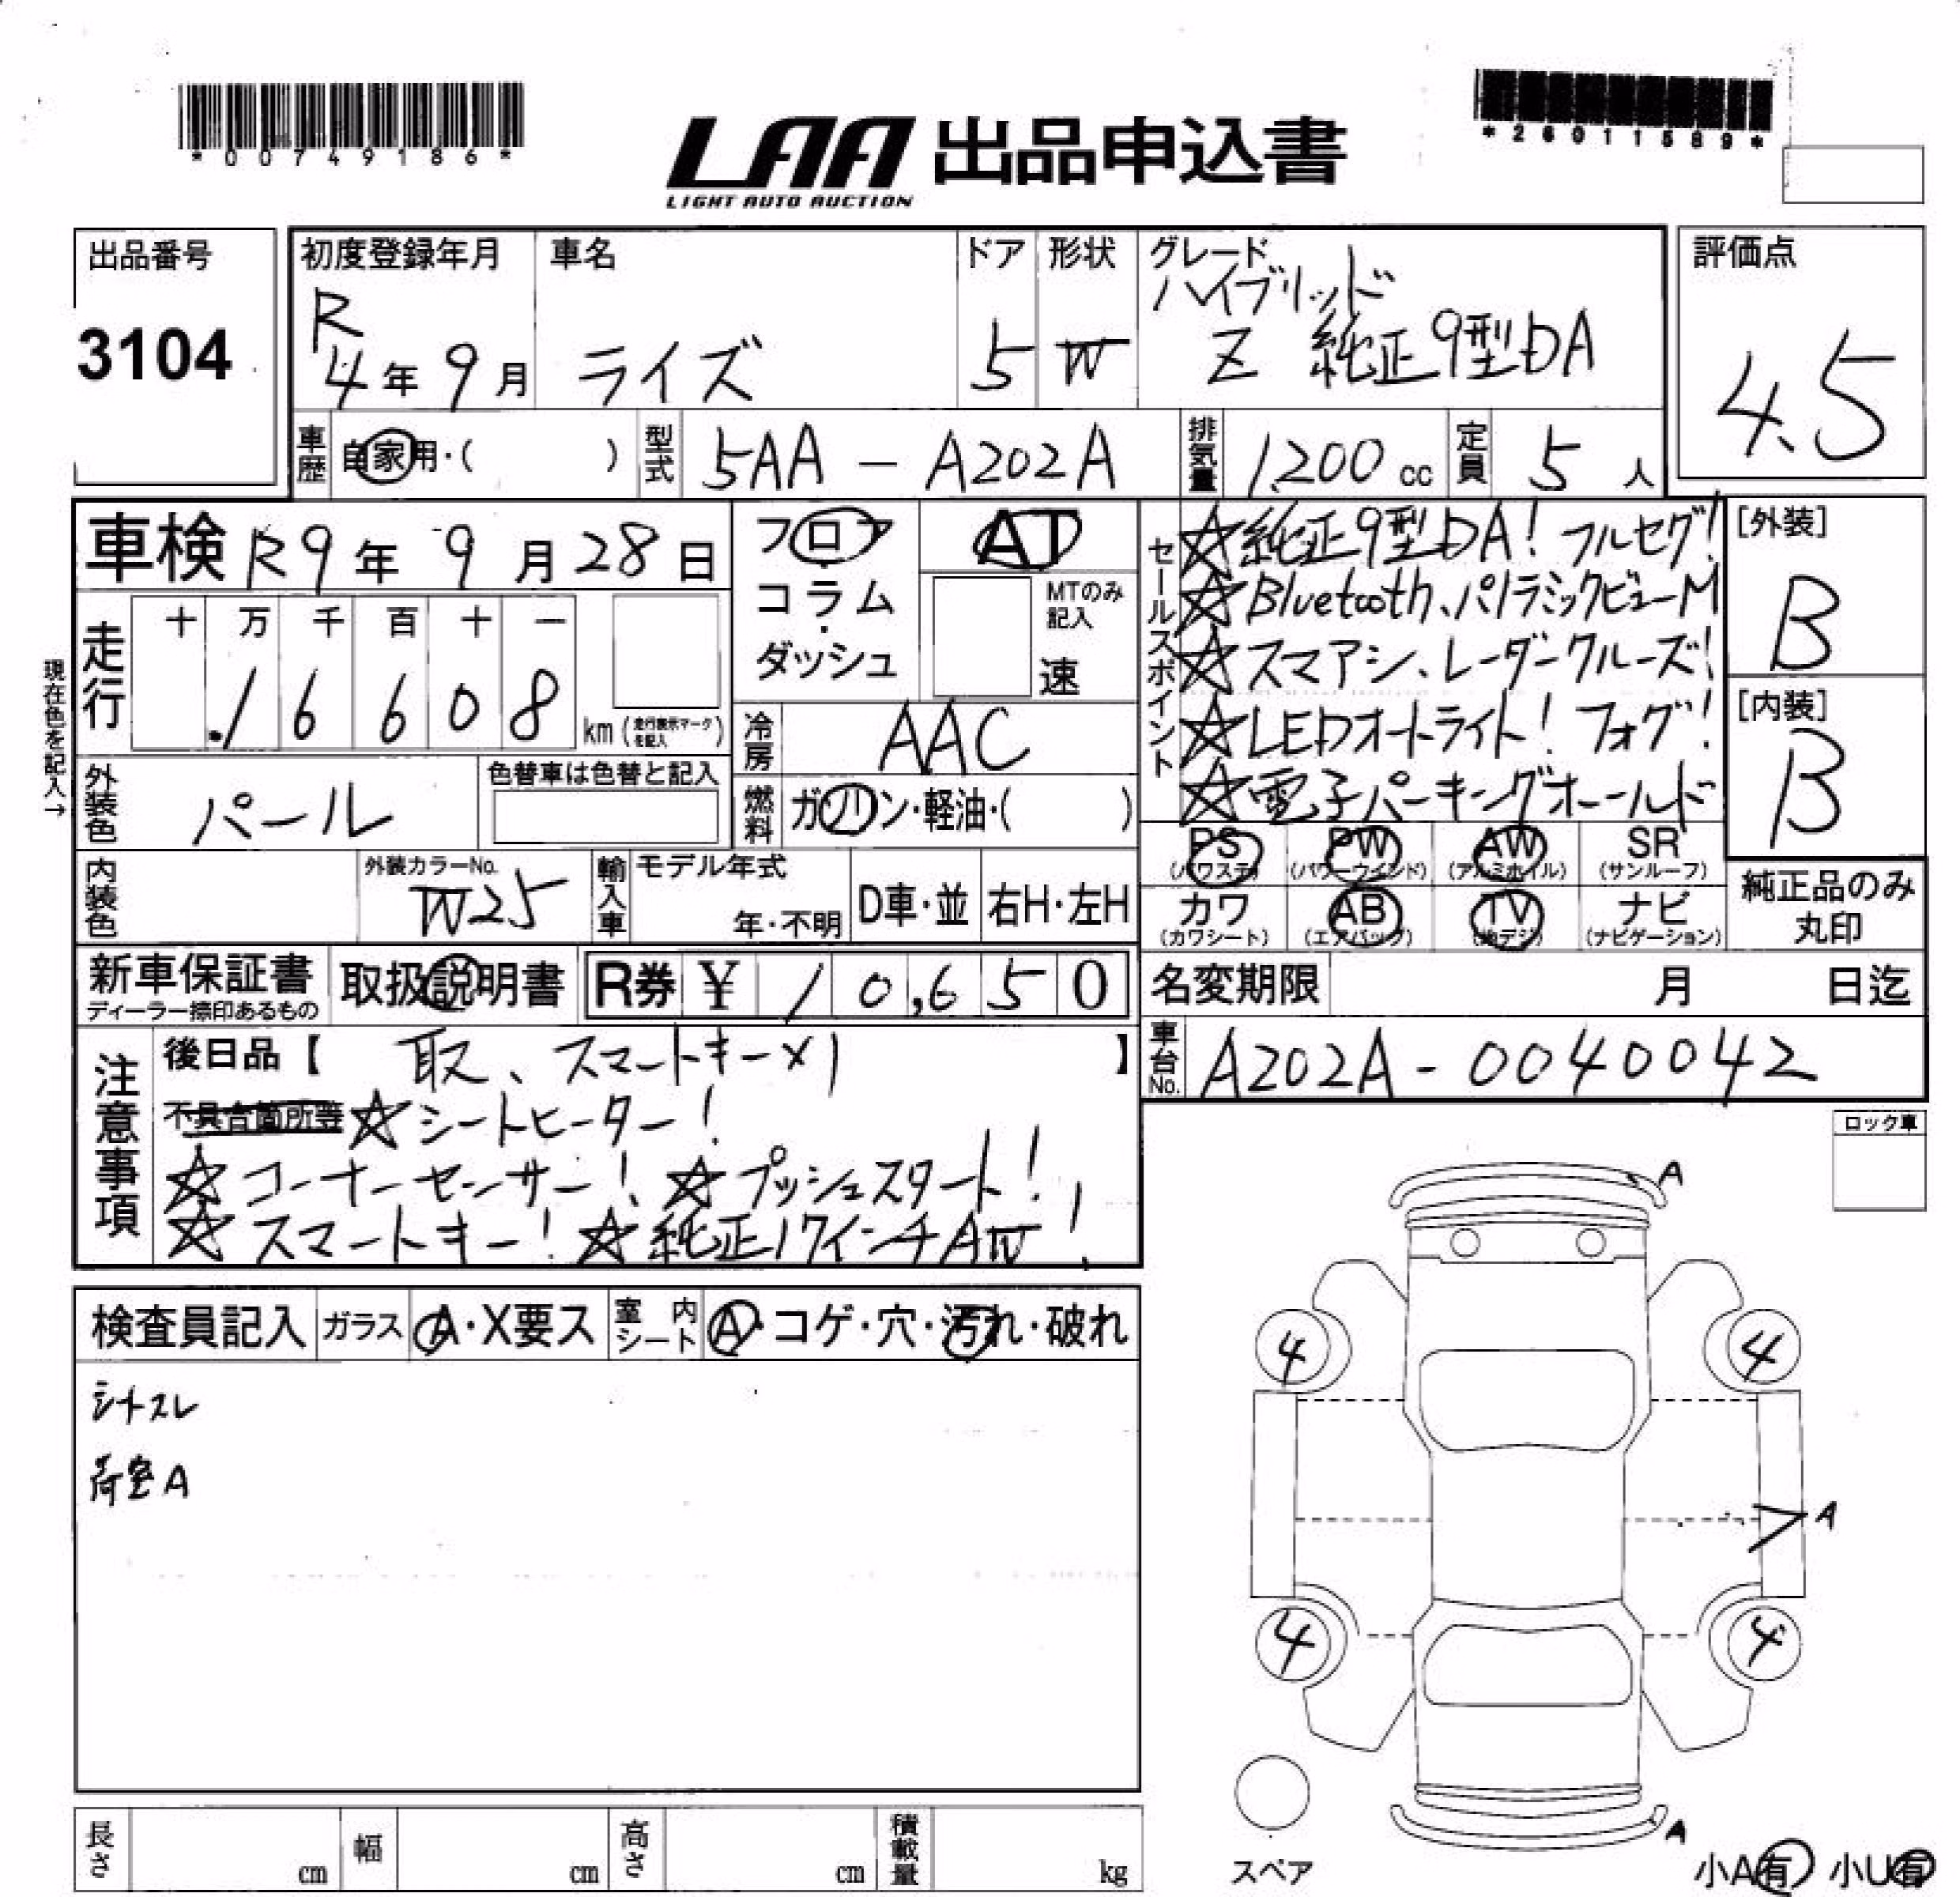 *00749186*
LAA 出品申込書
LIGHT AUTO AUCTION
*26011589*
出品番号
3104
初度登録年月
R
4年 9月
車名
ライズ
ドア
5
形状
W
グレード
ハイブリッド
Z 純正9型DA
評価点
4.5
車歴 自家用・( )
型式 5AA - A202A
排気量 1,200 cc
定員 5 人
車検 R9年 9月28日
フロア・コラム・ダッシュ
AT
MTのみ記入
速
現在色を記入→
走行
十 万 千 百 十 一
1 6 6 0 8
km (走行表示マークを記入)
冷房 AAC
外装色 パール
色替車は色替と記入
燃料 ガソリン・軽油・( )
内装色
外装カラーNo.
W25
輸入車
モデル年式
年・不明
D車・並
右H・左H
セールスポイント
☆純正9型DA! フルセグ!
☆Bluetooth、パノラミックビューM
☆スマアシ、レーダークルーズ!
☆LEDオートライト! フォグ!
☆電子パーキングオールド
[外装]
B
[内装]
B
PS (パワステ)
PW (パワーウインド)
AW (アルミホイル)
SR (サンルーフ)
カワ (カワシート)
AB (エアバッグ)
TV (地デジ)
ナビ (ナビゲーション)
純正品のみ丸印
新車保証書
ディーラー捺印あるもの
取扱説明書
R券 ¥ 10,650
名変期限 月 日迄
車台No. A202A-0040042
注意事項
後日品【 取、スマートキー×1 】
不具合箇所等 ☆シートヒーター!
☆コーナーセンサー! ☆プッシュスタート!
☆スマートキー! ☆純正17インチAW!
ロック車
検査員記入
ガラス A・X要ス
室内シート A・コゲ・穴・汚れ・破れ
シートスレ
荷室A
A
4
4
A
4
4
A
スペア
小A有 小U有
長さ cm
幅 cm
高さ cm
積載量 kg